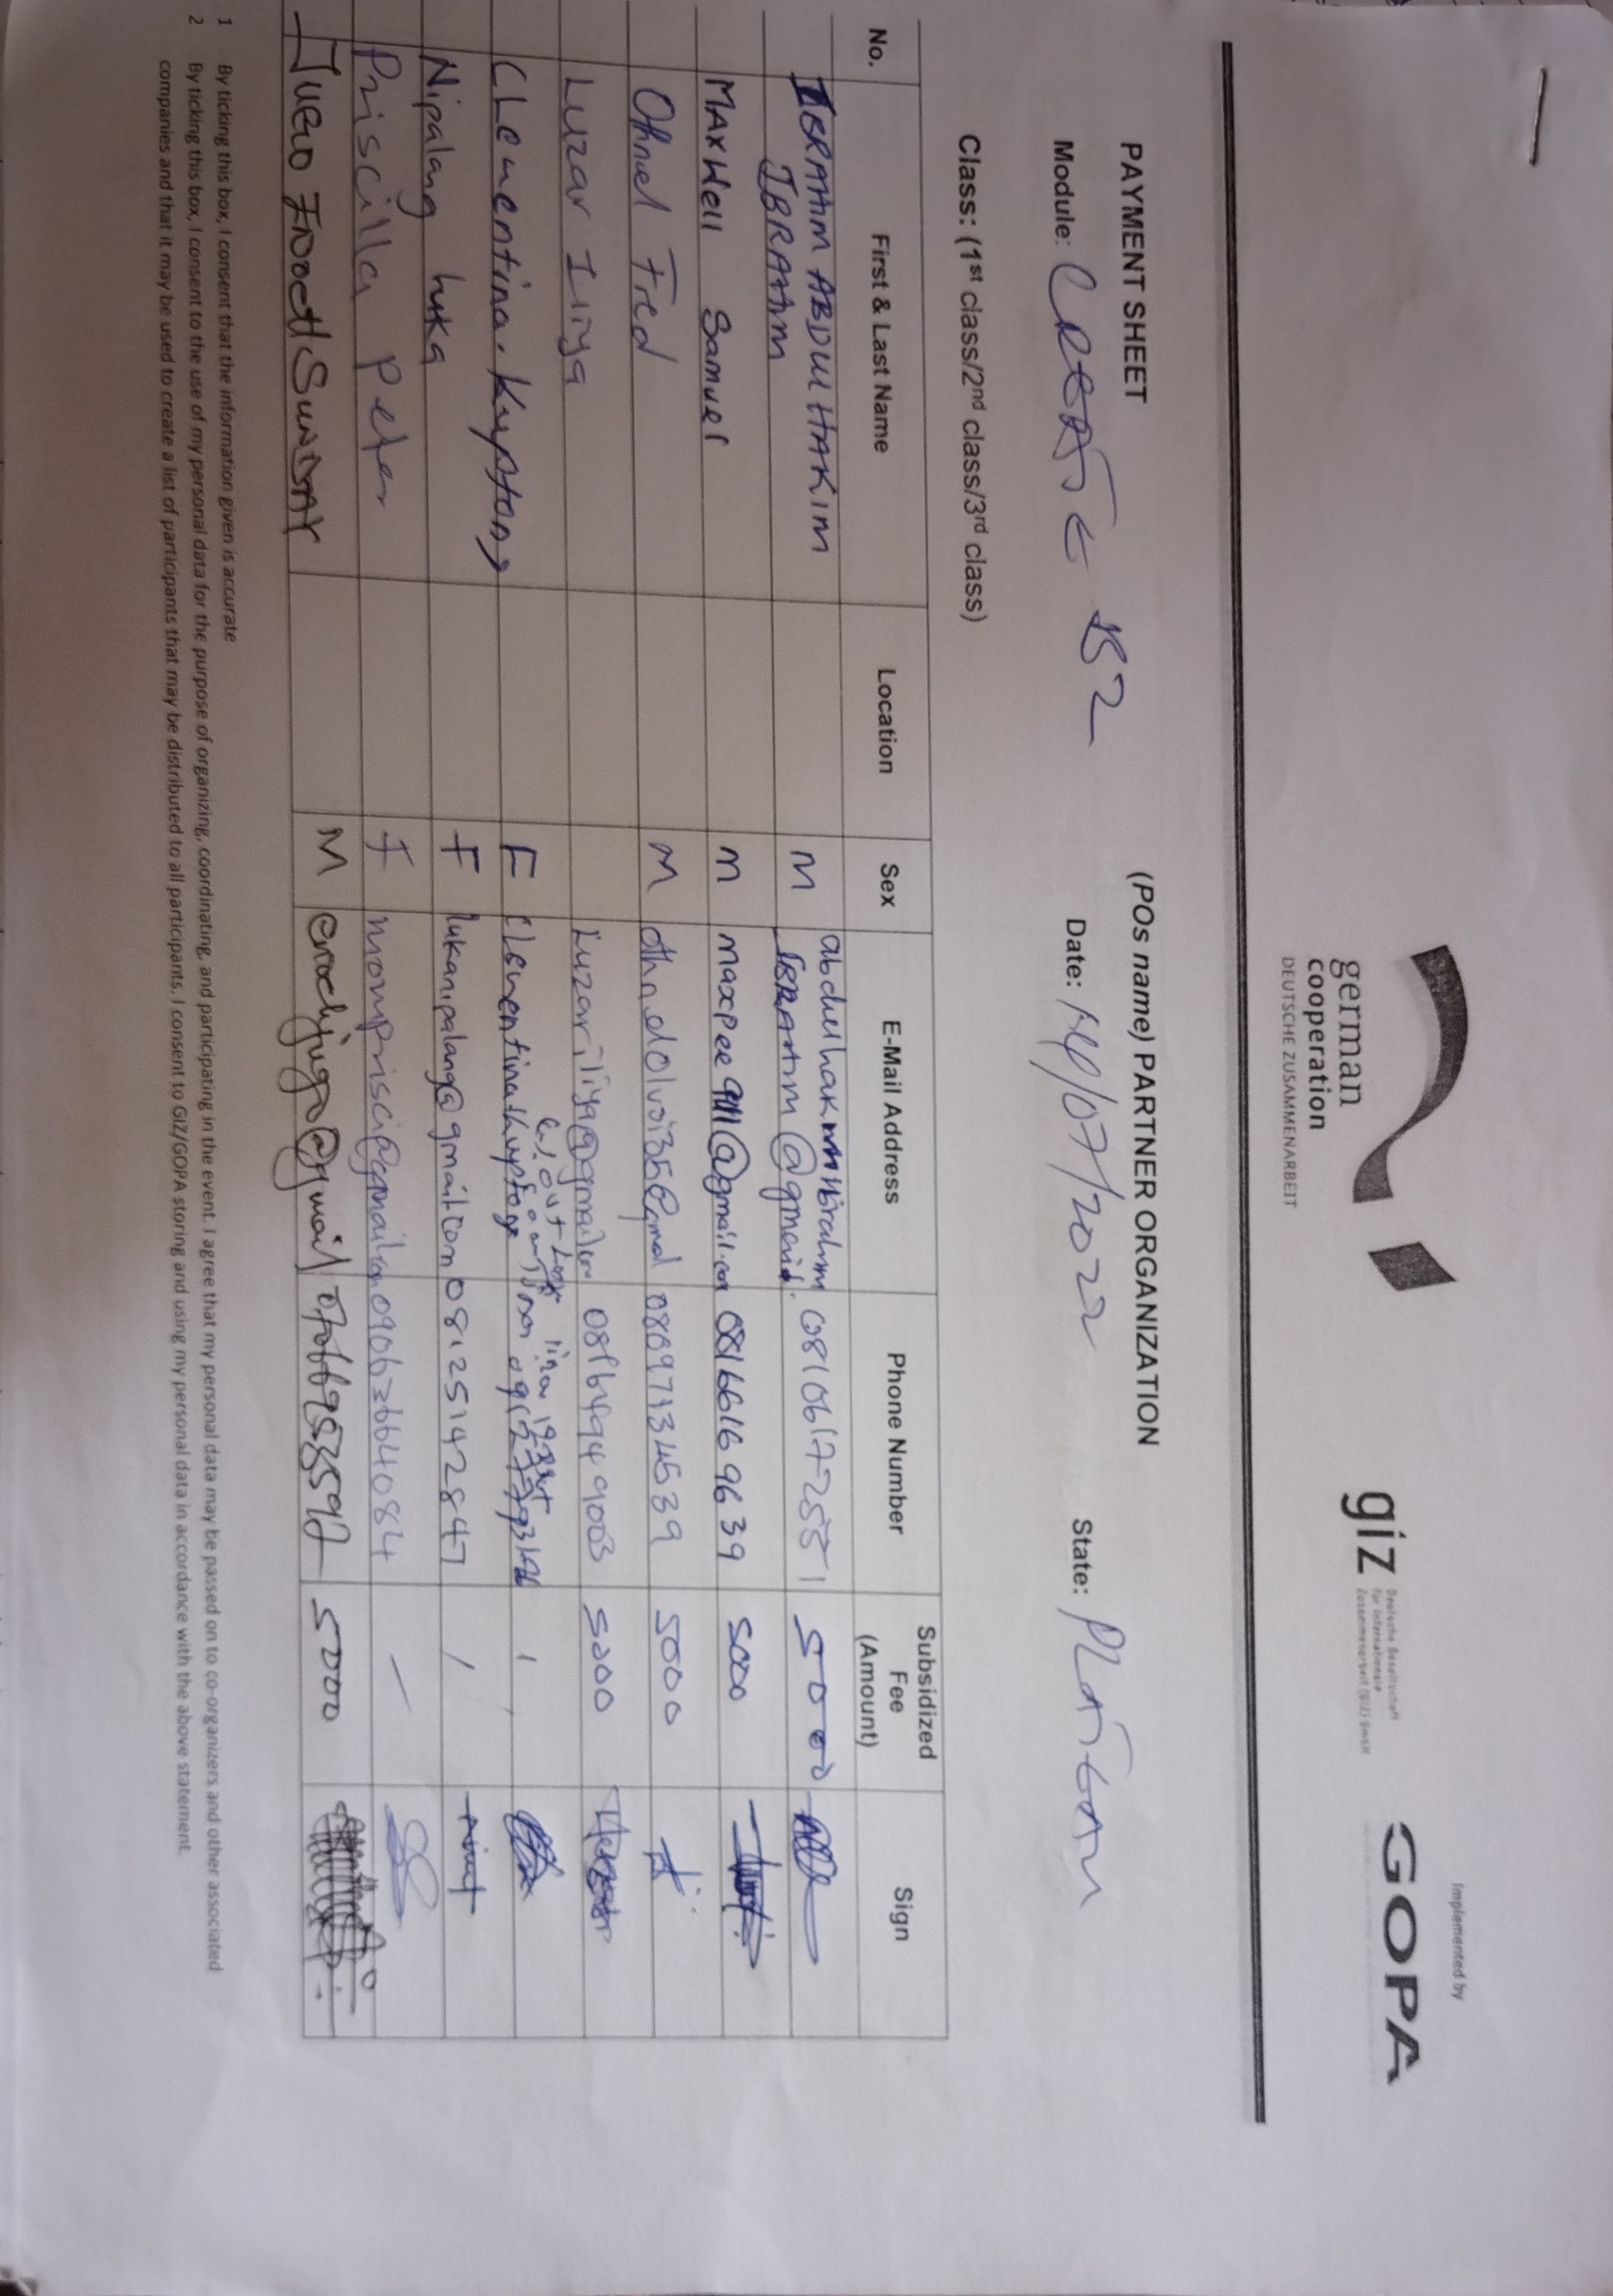 Implemented by
german
cooperation
DEUTSCHE ZUSAMMENARBEIT
giz Deutsche Gesellschaft
für Internationale
Zusammenarbeit (GIZ) GmbH
GOPA
PAYMENT SHEET (POs name) PARTNER ORGANIZATION
Module: CREATE B2 Date: 14/07/2022 State: PLATEAU
Class: (1st class/2nd class/3rd class)
No. First & Last Name Location Sex E-Mail Address Phone Number Subsidized Fee (Amount) Sign
IBRAHIM ABDUL HAKIM
IBRAHIM M IBRAHIM @gmail. 08106172551 5000
MAXWell Samuel M 08166169639 5000
Othniel Fred M 08097134539 5000
Luzar Iliya Luzariliya@gmail.com 08164949003 5000
CLementina. Kuptong F /
Nipalang Luka F lukanipalang@gmail.com 08125142847 /
Priscilla Peter F 09063664084 —
JUGO ENOCH SUNDAY M enochjugo@gmail 5000
1 By ticking this box, I consent that the information given is accurate
2 By ticking this box, I consent to the use of my personal data for the purpose of organizing, coordinating, and participating in the event. I agree that my personal data may be passed on to co-organizers and other associated
companies and that it may be used to create a list of participants that may be distributed to all participants. I consent to GIZ/GOPA storing and using my personal data in accordance with the above statement.